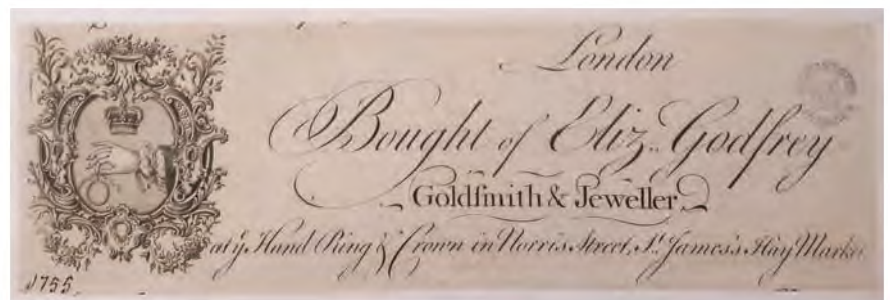 London
Bought of Eliz. Godfrey
Goldſmith & Jeweller
at yͤ Hand Ring & Crown in Norris Street, Sᵗ. James's Hay Market
1755